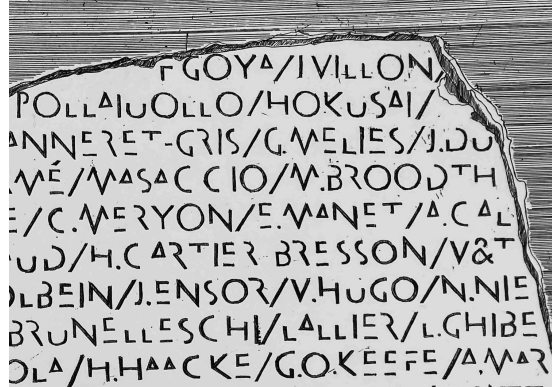 F GOYA/J VILLON/
POLLAIUOLLO/HOKUSAI/
ANNERET-GRIS/G.MELIES/J.DU
MÉ/MASACCIO/M.BROODTH
E/C.MERYON/E.MANET/A.CAL
UD/H.CARTIER BRESSON/V&T
OLBEIN/J.ENSOR/V.HUGO/N.NIE
BRUNELLESCHI/LALLIER/L.GHIBE
OLA/H.HAACKE/G.O.KEEFE/A.MAR